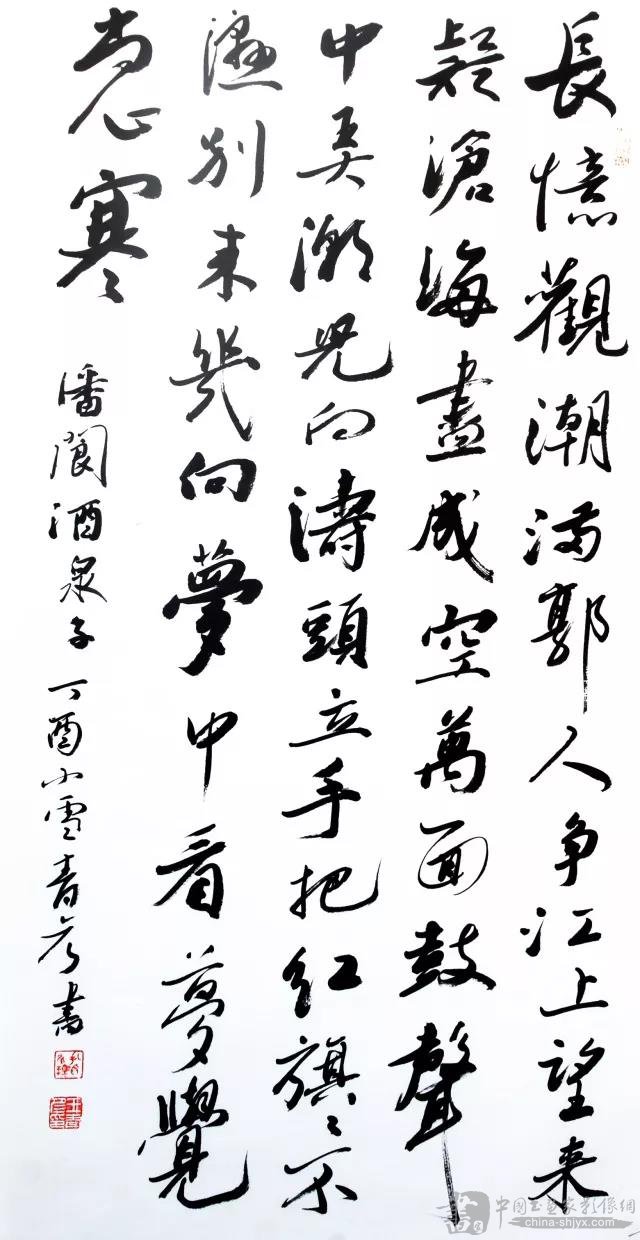 長憶觀潮滿郭人争江上望来
疑滄海盡成空萬面鼓聲
中弄潮児向濤頭立手把红旗〻不
濕别来幾向夢中看夢覺
尚心寒
潘閬酒泉子丁酉小雪青書
中國书画家影像網
china-shjyx.com